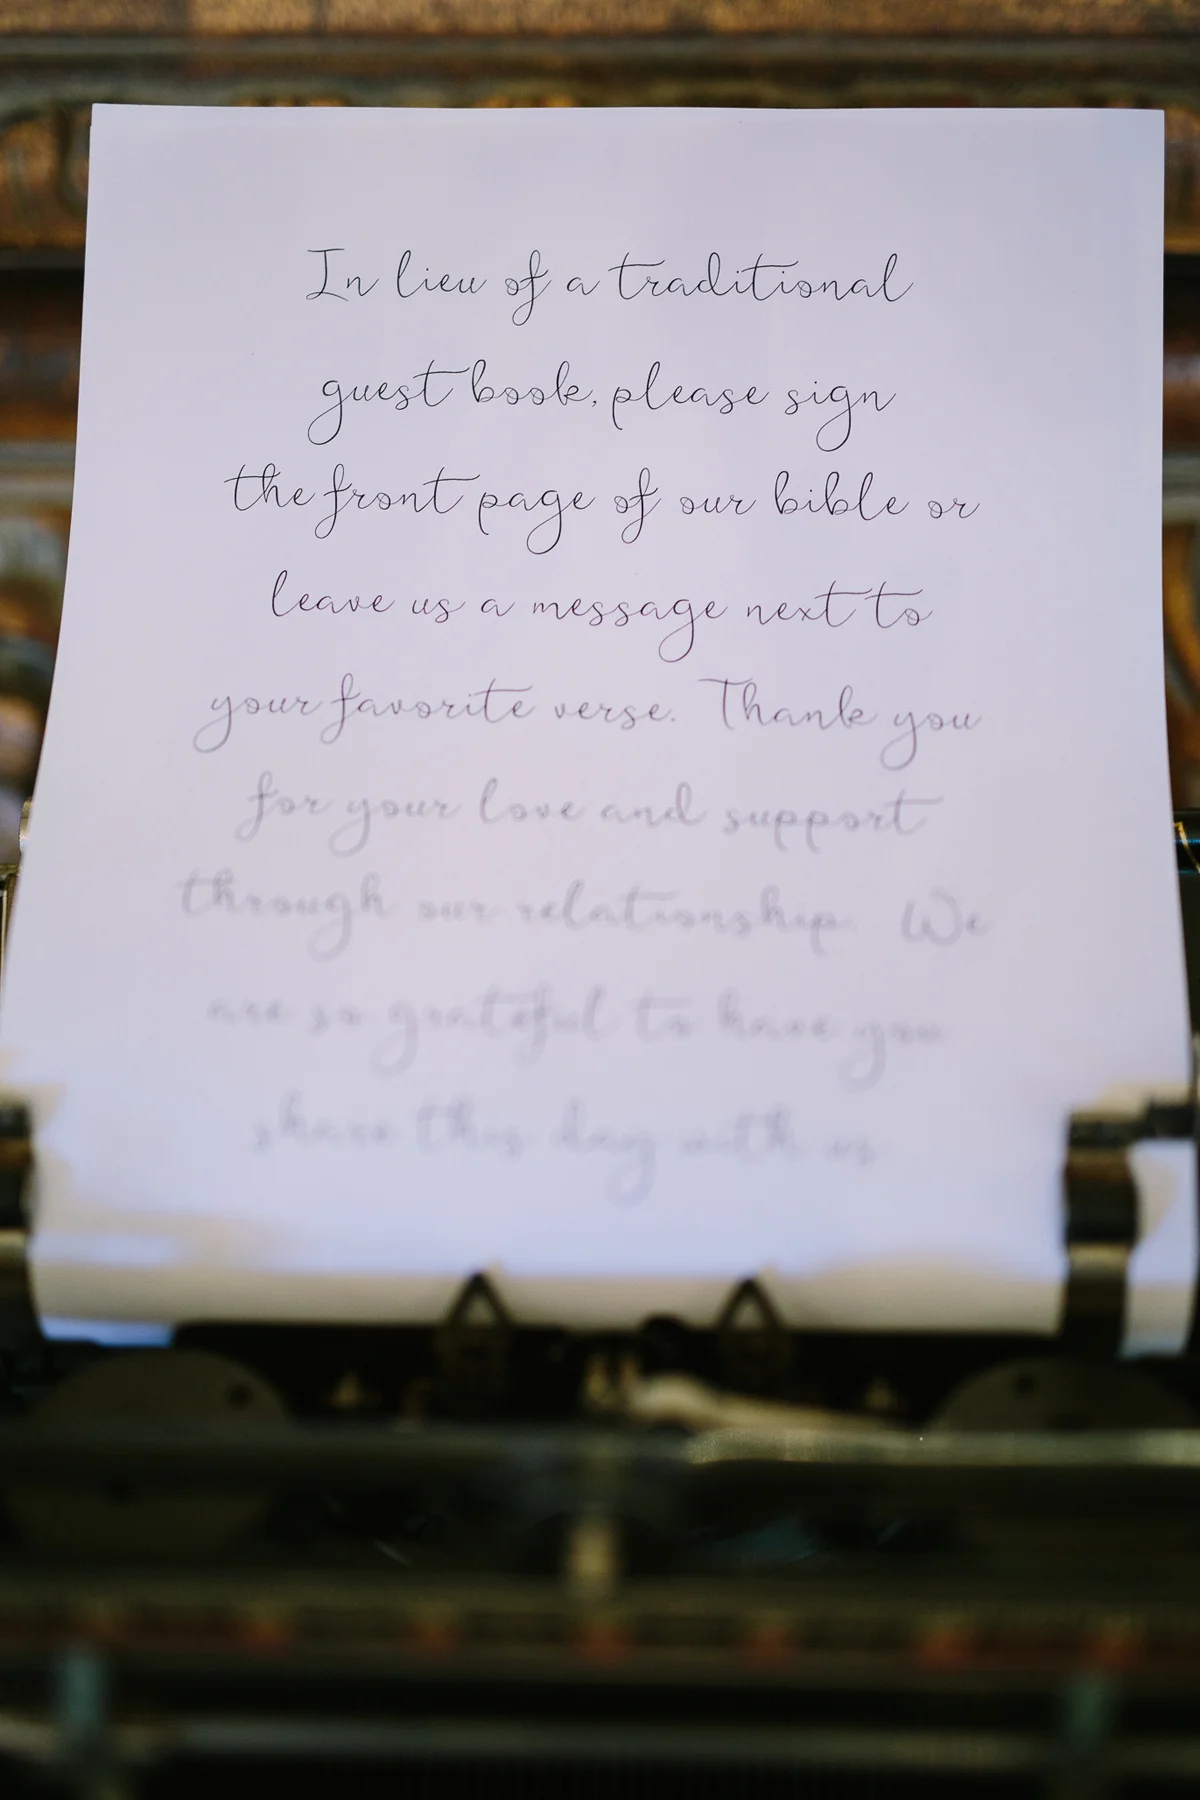 In lieu of a traditional
guest book, please sign
the front page of our bible or
leave us a message next to
your favorite verse. Thank you
for your love and support
through our relationship. We
are so grateful to have you
share this day with us